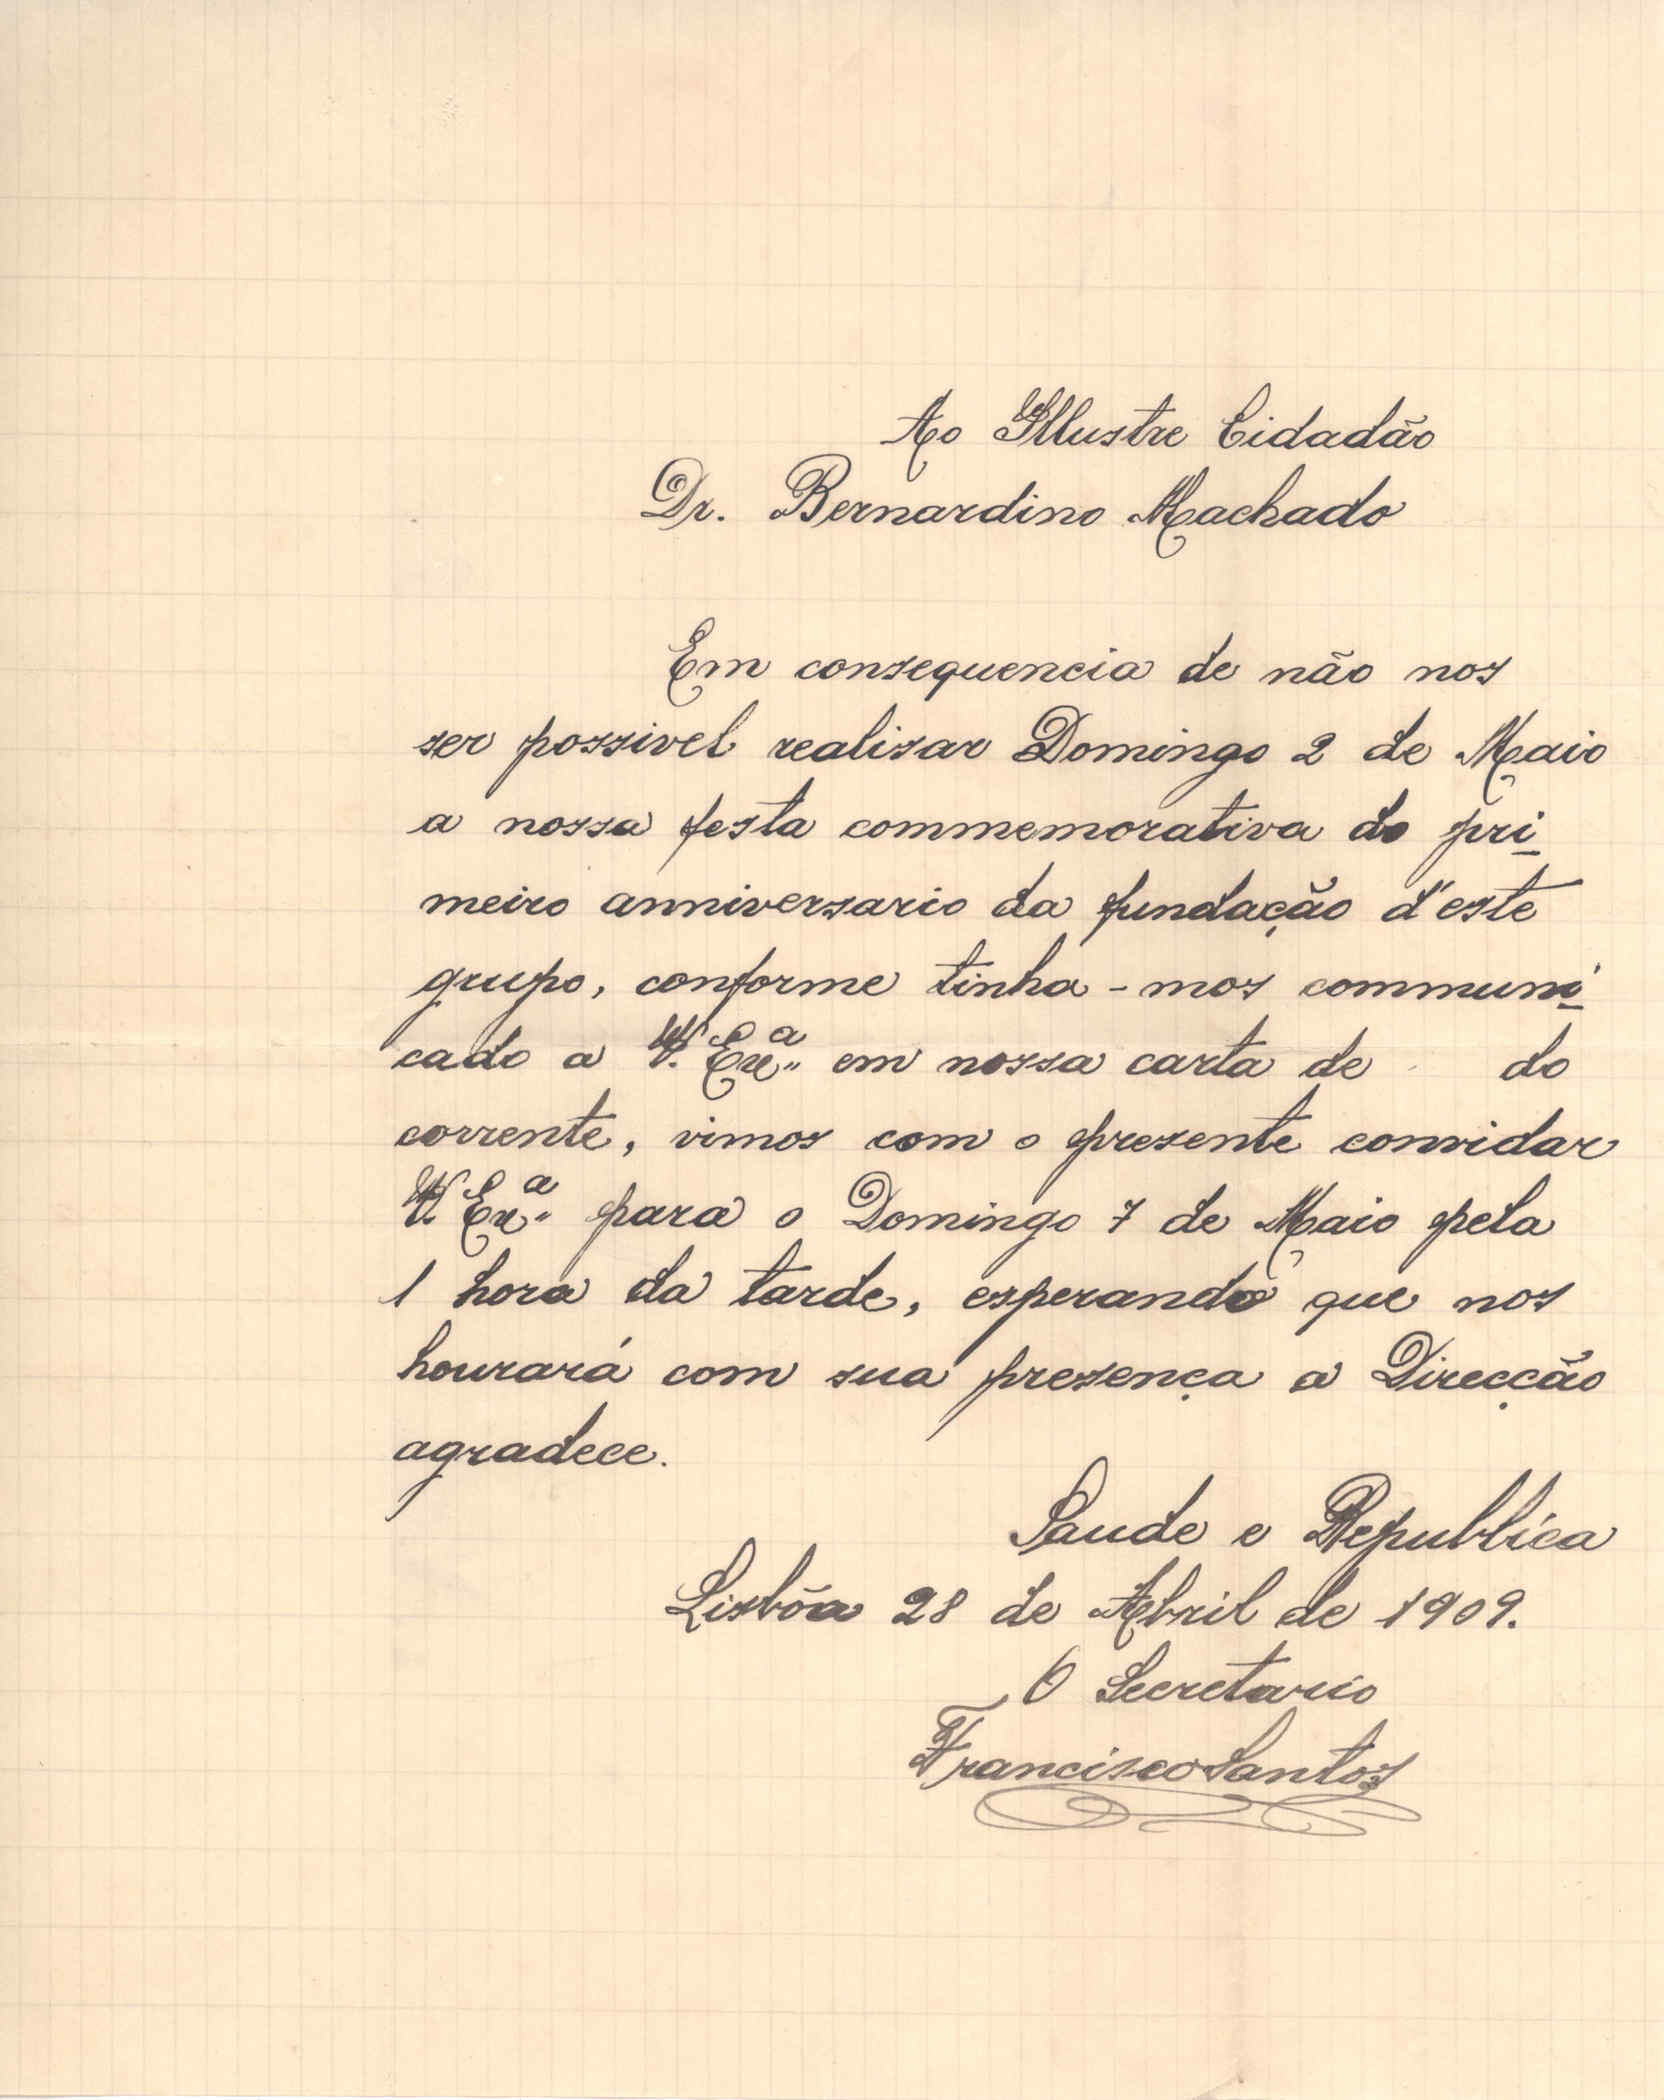 Ao Illustre Cidadão
Dr. Bernardino Machado
Em consequencia de não nos
ser possivel realisar Domingo 2 de Maio
a nossa festa commemorativa do pri-
meiro anniversario da fundação d'este
grupo, conforme tinha-mos communi-
cado a V. Exª. em nossa carta de do
corrente, vimos com o presente convidar
V. Exª. para o Domingo 7 de Maio pela
1 hora da tarde, esperando que nos
honrará com sua presença a Direcção
agradece.
Saude e Republica
Lisbôa 28 de Abril de 1909.
O Secretario
Francisco Santos